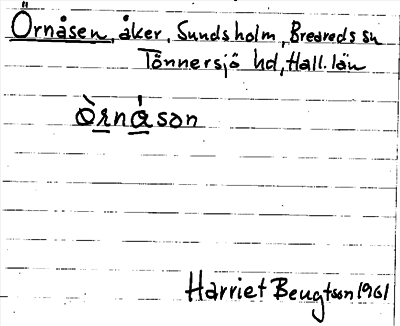 Örnåsen, åker, Sundsholm, Breareds sn
Tönnersjö hd, Hall. län
ö̀rnásan
Harriet Bengtsson 1961